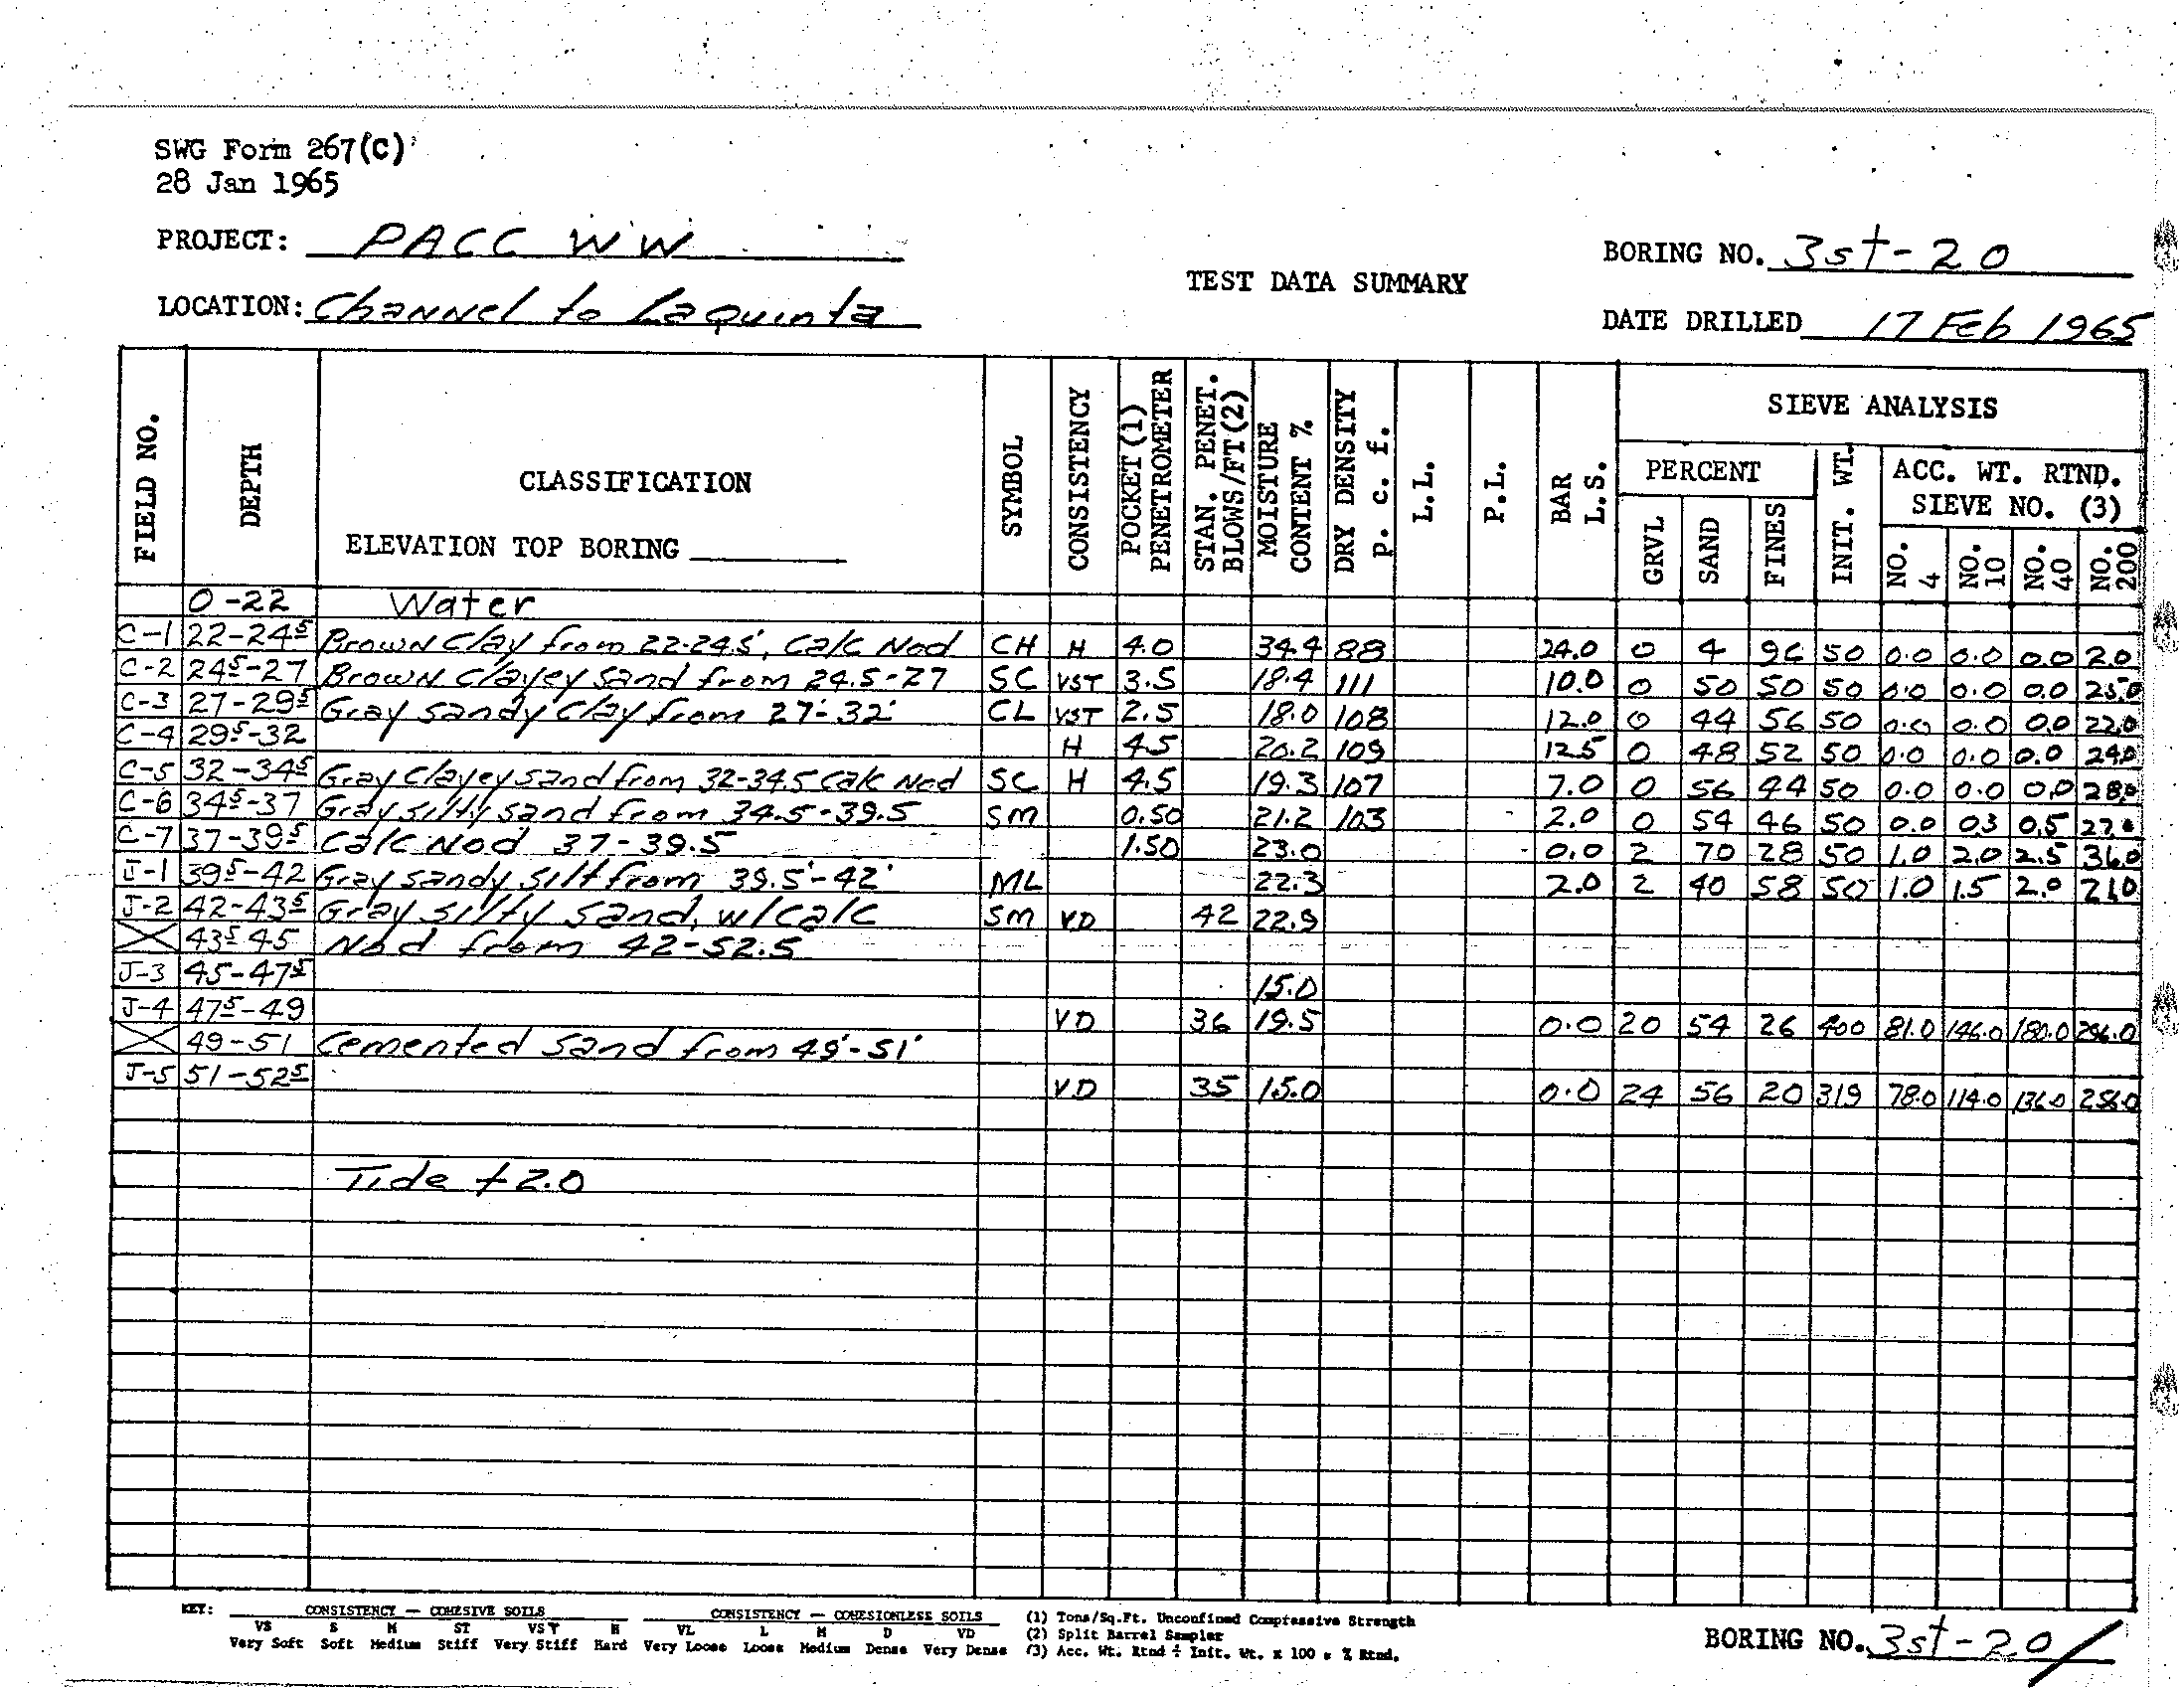 SWG Form 267(C)
28 Jan 1965
PROJECT: PACC WW
BORING NO. 3st-20
TEST DATA SUMMARY
LOCATION: Channel to Laquinta
DATE DRILLED 17 Feb 1965
FIELD NO. DEPTH CLASSIFICATION SYMBOL CONSISTENCY POCKET (1) PENETROMETER STAN. PENET. BLOWS/FT (2) MOISTURE CONTENT % DRY DENSITY p. c. f. L.L. P.L. BAR L.S. SIEVE ANALYSIS
ELEVATION TOP BORING
PERCENT INIT. WT. ACC. WT. RTND. SIEVE NO. (3)
GRVL SAND FINES NO. 4 NO. 10 NO. 40 NO. 200
0-22 Water
C-1 22-24⁵ Brown Clay from 22-24.5', Calc Nod CH H 4.0 34.4 88 24.0 0 4 96 50 0.0 0.0 0.0 2.0
C-2 24⁵-27 Brown Clayey Sand from 24.5-27 SC VST 3.5 18.4 111 10.0 0 50 50 50 0.0 0.0 0.0 25.0
C-3 27-29⁵ Gray Sandy Clay from 27'-32' CL VST 2.5 18.0 108 12.0 0 44 56 50 0.0 0.0 0.0 22.0
C-4 29⁵-32 H 4.5 20.2 109 12.5 0 48 52 50 0.0 0.0 0.0 24.0
C-5 32-34⁵ Gray Clayey Sand from 32-34.5 Calc Nod SC H 4.5 19.3 107 7.0 0 56 44 50 0.0 0.0 0.0 28.0
C-6 34⁵-37 Gray silty sand from 34.5-39.5 SM 0.50 21.2 103 2.0 0 54 46 50 0.0 03 0.5 27.0
C-7 37-39⁵ Calc Nod 37-39.5 1.50 23.0 0.0 2 70 28 50 1.0 2.0 2.5 36.0
J-1 39⁵-42 Gray sandy silt from 39.5'-42' ML 22.3 2.0 2 40 58 50 1.0 1.5 2.0 21.0
J-2 42-43⁵ Gray silty sand, w/calc SM VD 42 22.9
43⁵-45 Nod from 42-52.5
J-3 45-47⁵ 15.0
J-4 47⁵-49 VD 36 19.5 0.0 20 54 26 400 81.0 146.0 180.0 296.0
49-51 Cemented Sand from 49'-51'
J-5 51-52⁵ VD 35 15.0 0.0 24 56 20 319 78.0 114.0 136.0 256.0
Tide +2.0
KEY: CONSISTENCY — COHESIVE SOILS CONSISTENCY — COHESIONLESS SOILS (1) Tons/Sq.Ft. Unconfined Compressive Strength
VS S M ST VST H VL L M D VD (2) Split Barrel Sampler
Very Soft Soft Medium Stiff Very Stiff Hard Very Loose Loose Medium Dense Very Dense (3) Acc. Wt. Rtnd ÷ Init. Wt. x 100 = % Rtnd.
BORING NO. 3st-20